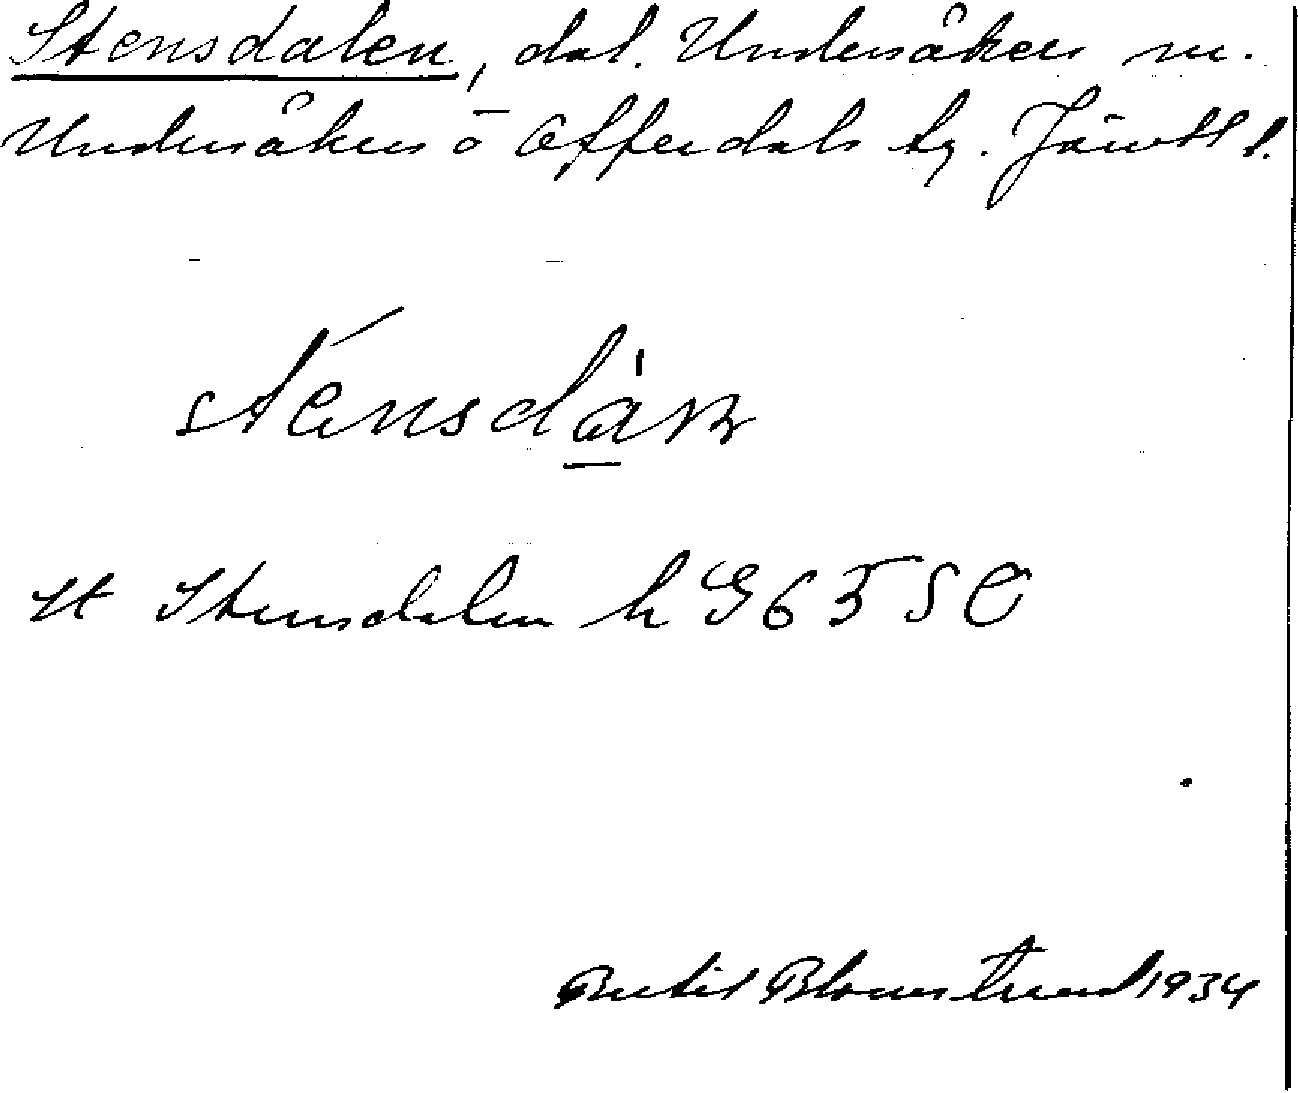 Stensdalen, dal. Undersåkers sn.
Undersåkers o Offerdals tg. Jämtl l.
St Stensdalen h G 65 SO
Bertil Blomstrand 1934